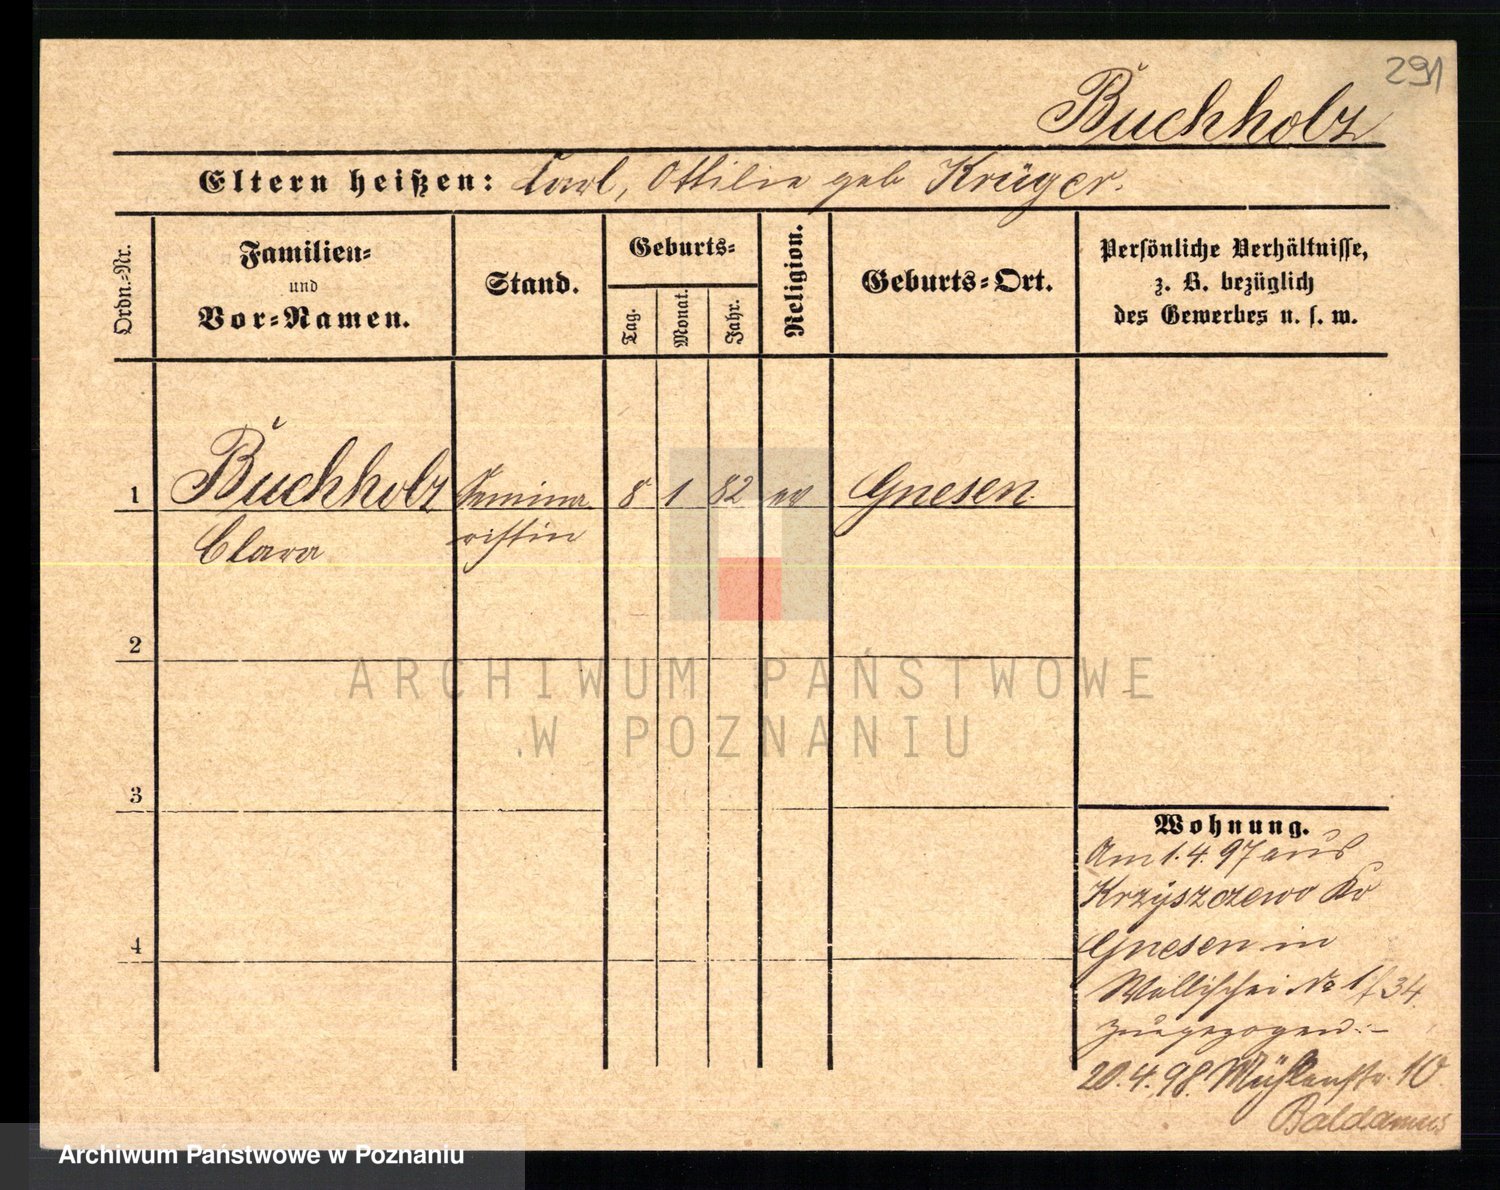 291
Buchholz
Eltern heißen: Carl, Ottilie geb Krüger.
Ordn.=Nr.
Familien=
und
Vor=Namen.
Stand.
Geburts=
Tag.
Monat.
Jahr.
Religion.
Geburts=Ort.
Persönliche Verhältnisse,
z. B. bezüglich
des Gewerbes u. s. w.
1 Buchholz Semina 8 1 82 ev Gnesen
Clara ristin
2
3
4
Wohnung.
Am 1.4.97 aus
Krzyszczewo Kr
Gnesen in
Wallischei No 1/34
zugezogen.
20.4.98. Mühlenstr. 10
Baldamus
ARCHIWUM PAŃSTWOWE
W POZNANIU
Archiwum Państwowe w Poznaniu